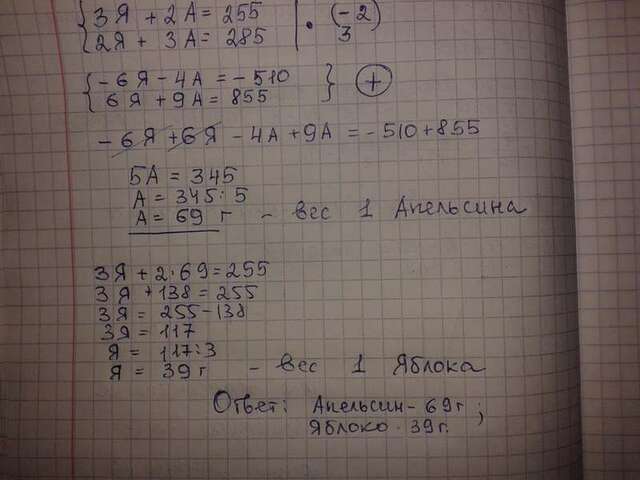 3Я + 2А = 255 | · (-2)
2Я + 3А = 285 | 3
-6Я - 4А = -510
6Я + 9А = 855 } (+)
-6Я + 6Я - 4А + 9А = -510 + 855
5А = 345
А = 345 : 5
А = 69 г - вес 1 Апельсина
3Я + 2·69 = 255
3Я + 138 = 255
3Я = 255 - 138
3Я = 117
Я = 117 : 3
Я = 39 г - вес 1 Яблока
Ответ: Апельсин - 69 г ;
Яблоко - 39 г.